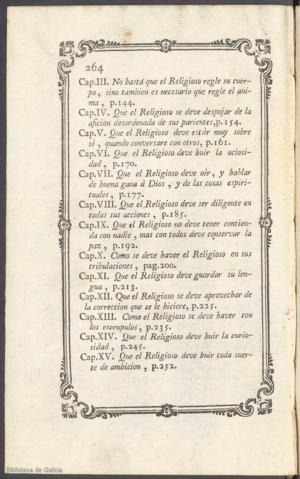 264
Cap.III. No bastá que el Religioso regle su cuer-
po, sino tambien es necesario que regle el ani-
ma, p.144.
Cap.IV. Que el Religioso se deve despojar de la
aficion desordenada de sus parientes, p.154.
Cap.V. Que el Religioso deve estàr muy sobre
sí, quando conversare con otros, p.161.
Cap.VI. Que el Religioso deve huir la ociosi-
dad, p.170.
Cap.VII. Que el Religioso deve oír, y hablar
de buena gana á Dios, y de las cosas espiri-
tuales, p.177.
Cap.VIII. Que el Religioso deve ser diligente en
todas sus acciones, p.185.
Cap.IX. Que el Religioso no deve tener contien-
da con nadie, mas con todos deve conservar la
paz, p.192.
Cap.X. Como se deve haver el Religioso en sus
tribulaciones, pag.200.
Cap.XI. Que el Religioso deve guardar su len-
gua, p.213.
Cap.XII. Que el Religioso se deve aprovechar de
la correccion que se le hiciere, p.225.
Cap.XIII. Como el Religioso se deve haver con
los escrupulos, p.235.
Cap.XIV. Que el Religioso deve huir la curio-
sidad, p.245.
Cap.XV. Que el Religioso deve huir toda suer-
te de ambicion, p.252.
Biblioteca de Galicia